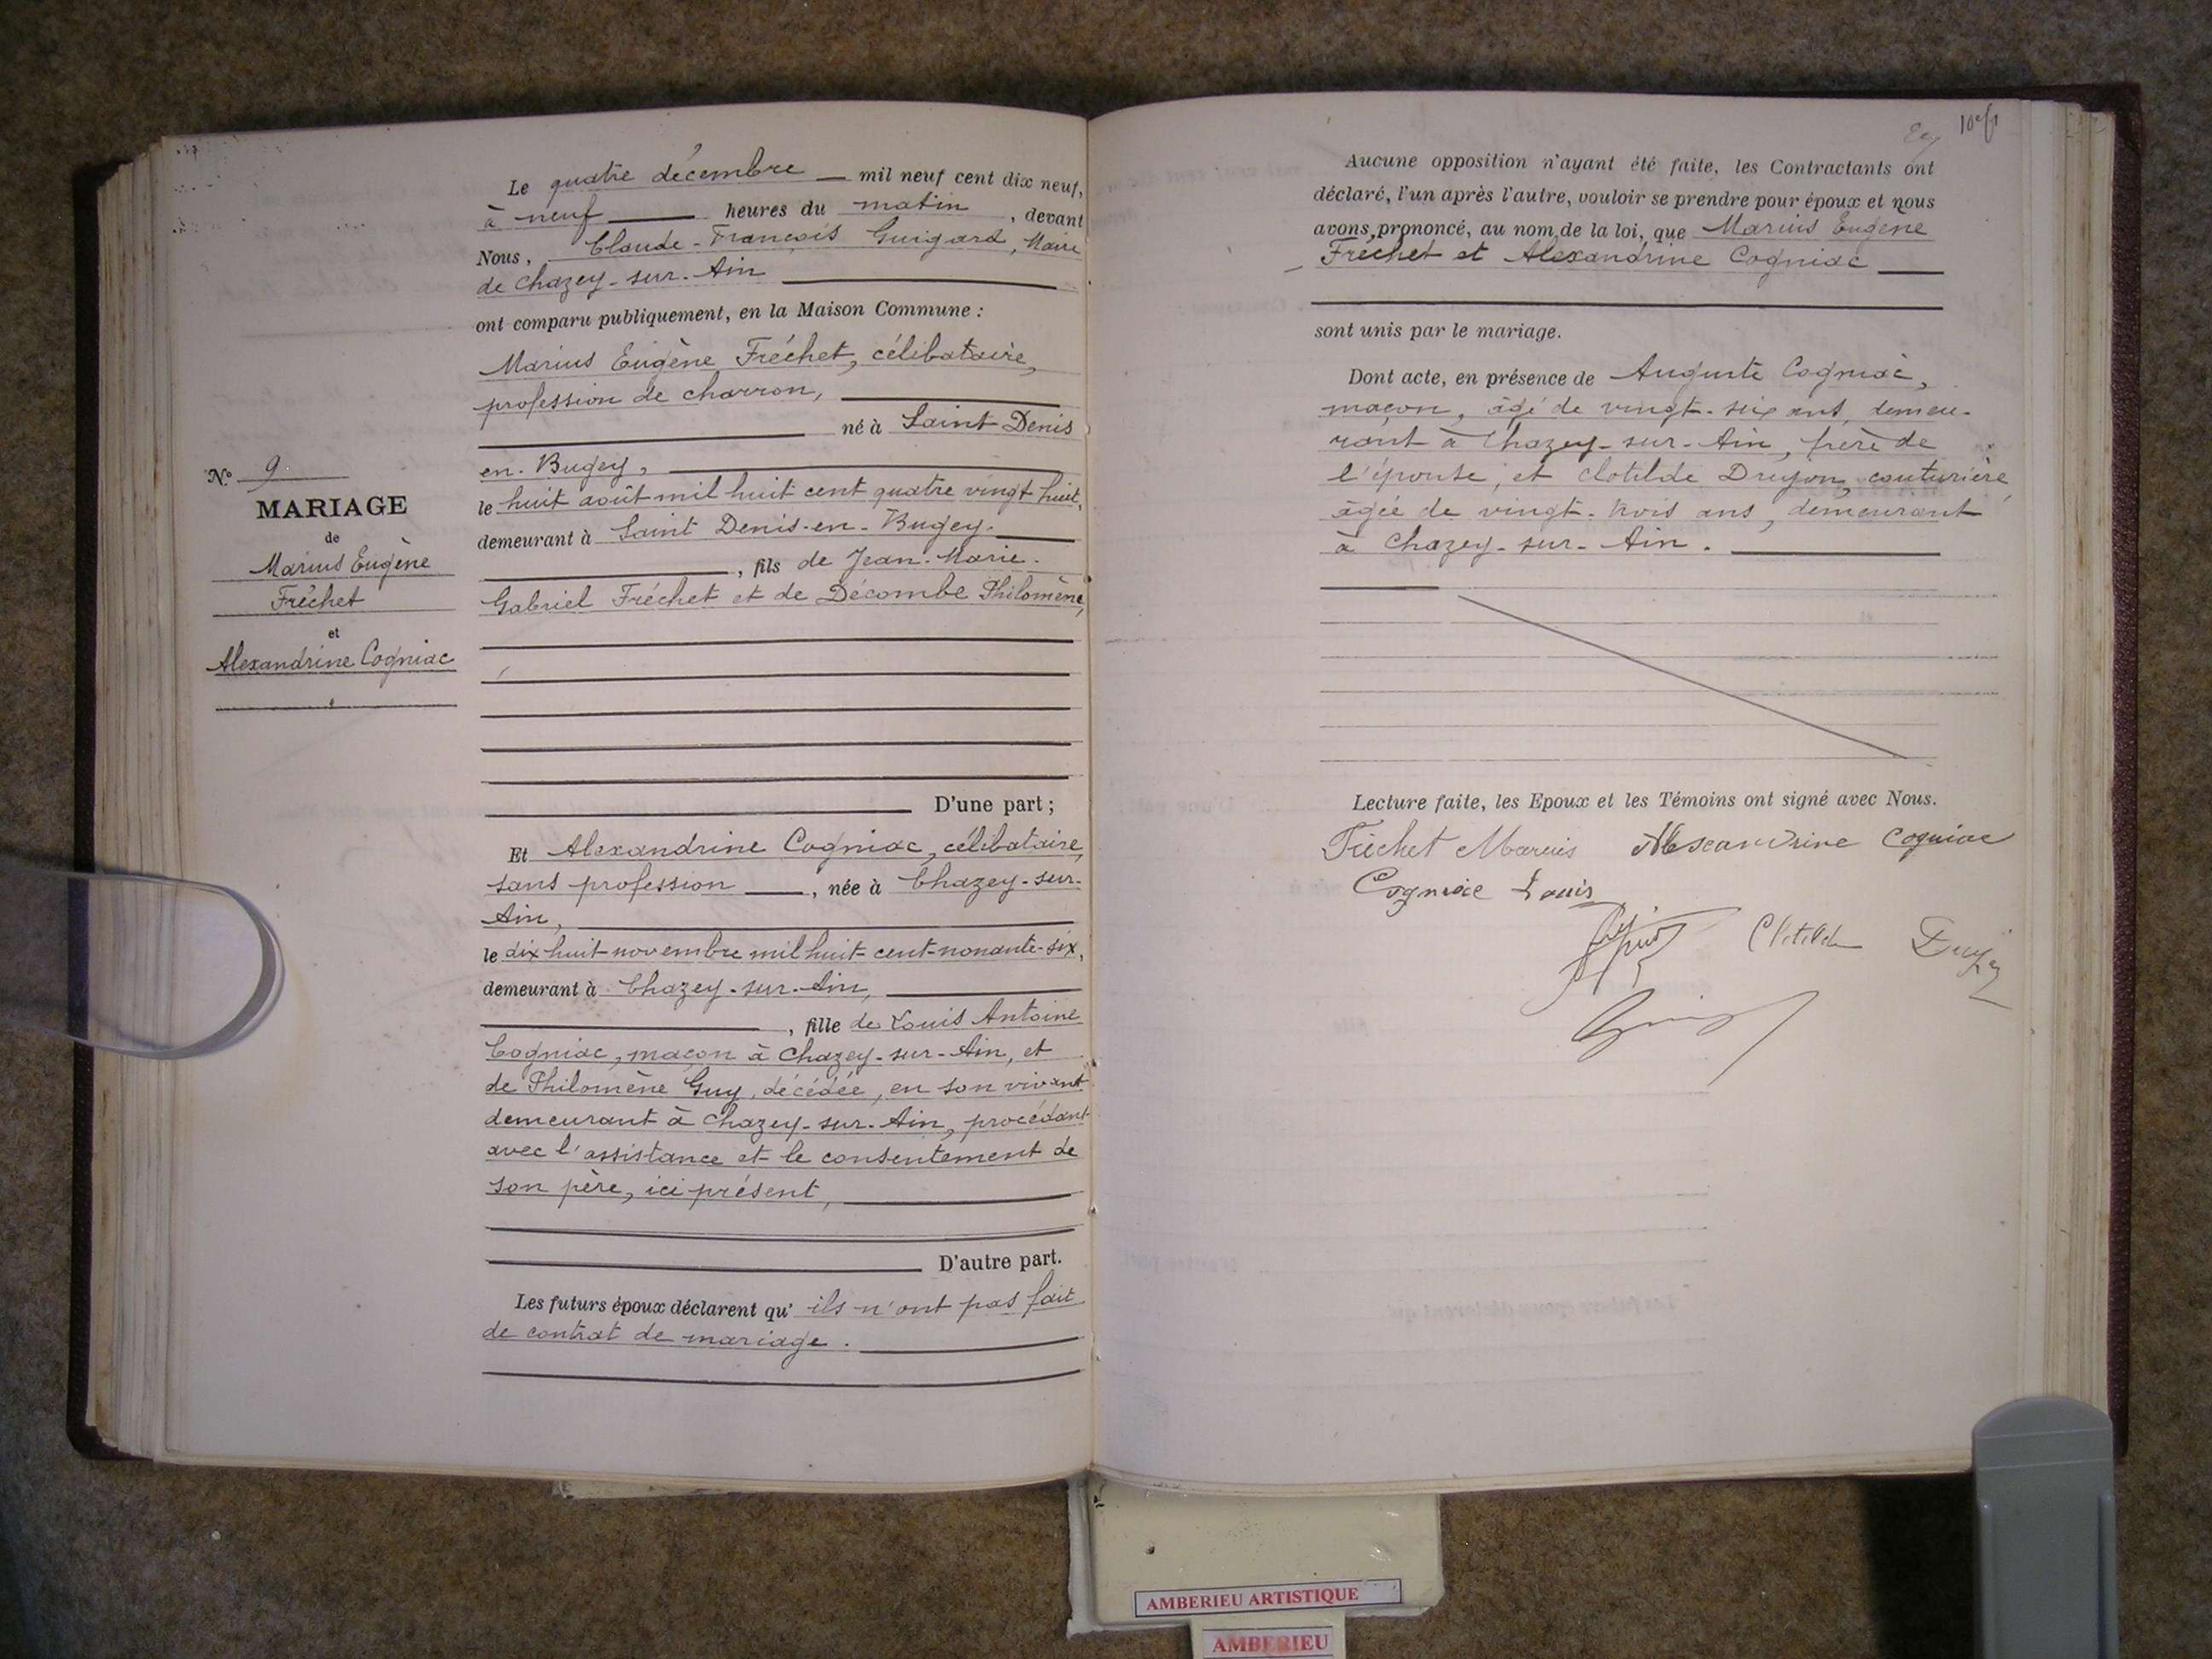 Le quatre décembre — mil neuf cent dix neuf,
à neuf — heures du matin, devant
Nous, Claude-François Guigard, Maire
de Chazey-sur-Ain
ont comparu publiquement, en la Maison Commune :
Marius Eugène Fréchet, célibataire,
profession de charron,
né à Saint-Denis
en-Bugey,
le huit août mil huit cent quatre vingt huit,
demeurant à Saint Denis-en-Bugey.
, fils de Jean-Marie-
Gabriel Fréchet et de Décombe Philomène,
D'une part ;
Et Alexandrine Cogniac, célibataire,
sans profession —, née à Chazey-sur-
Ain,
le dix huit novembre mil huit-cent-nonante-six,
demeurant à Chazey-sur-Ain,
, fille de Louis Antoine
Cogniac, maçon à Chazey-sur-Ain, et
de Philomène Guy, décédée, en son vivant
demeurant à Chazey-sur-Ain, procédant
avec l'assistance et le consentement de
son père, ici présent,
D'autre part.
Les futurs époux déclarent qu' ils n'ont pas fait
de contrat de mariage.
N° 9
MARIAGE
de
Marius Eugène
Fréchet
et
Alexandrine Cogniac
Aucune opposition n'ayant été faite, les Contractants ont
déclaré, l'un après l'autre, vouloir se prendre pour époux et nous
avons prononcé, au nom de la loi, que Marius Eugène
Fréchet et Alexandrine Cogniac
sont unis par le mariage.
Dont acte, en présence de Auguste Cogniac,
maçon, âgé de vingt-six ans, demeu-
rant à Chazey-sur-Ain, frère de
l'épouse, et Clotilde Druyon, couturière,
âgée de vingt-trois ans, demeurant
à Chazey-sur-Ain.
Lecture faite, les Epoux et les Témoins ont signé avec Nous.
Fréchet Marius Alexandrine Cogniac
Cogniac Louis
Clotilde
AMBERIEU ARTISTIQUE
AMBERIEU